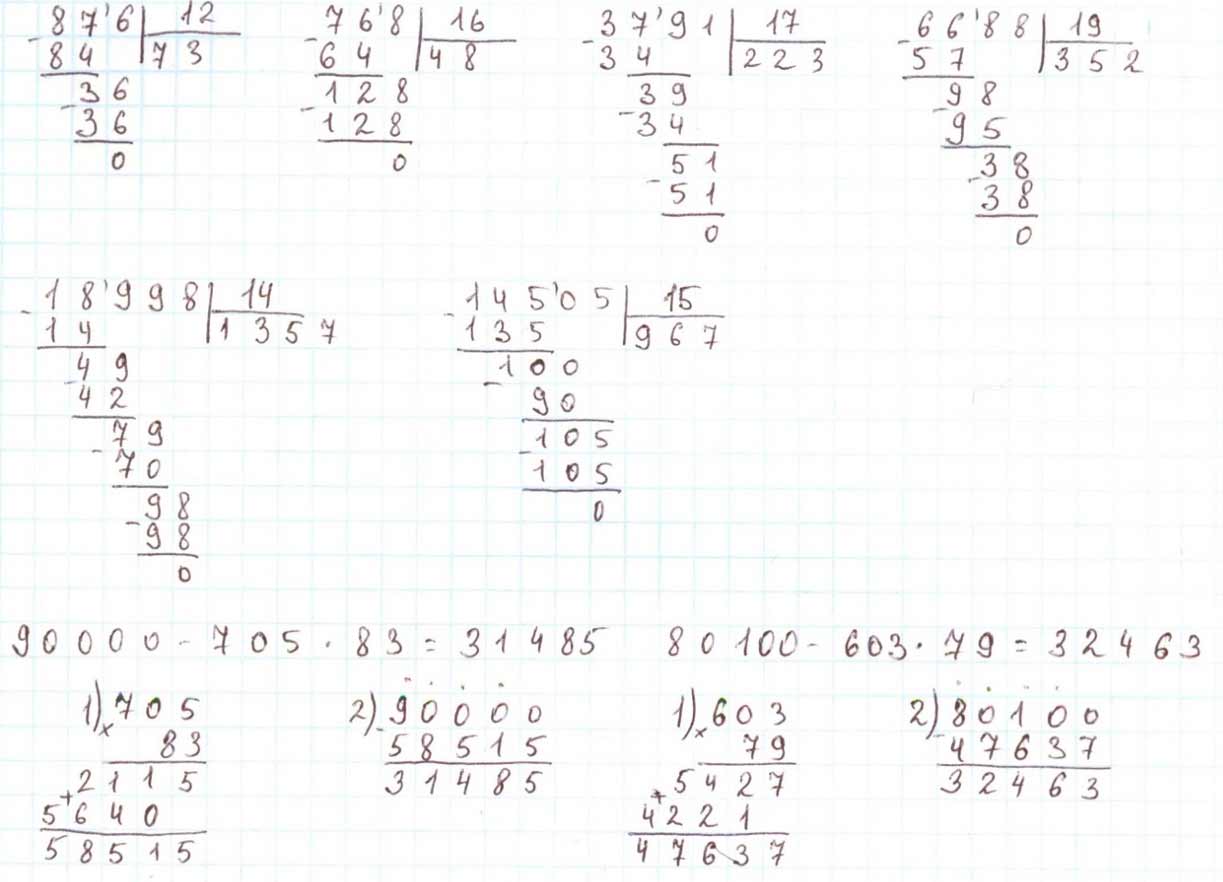 87'6 12 76'8 16 37'91 17 66'88 19
- 84 73 - 64 48 - 34 223 - 57 352
36 128 39 98
- 36 - 128 - 34 - 95
0 0 51 38
- 51 - 38
0 0
18'998 14 145'05 15
- 14 1357 - 135 967
49 100
- 42 - 90
79 105
- 70 - 105
98 0
- 98
0
90000 - 705 · 83 = 31485 80100 - 603 · 79 = 32463
1) x 705 2) - 90000 1) x 603 2) - 80100
83 58515 79 47637
2115 31485 5427 32463
+ 5640 + 4221
58515 47637